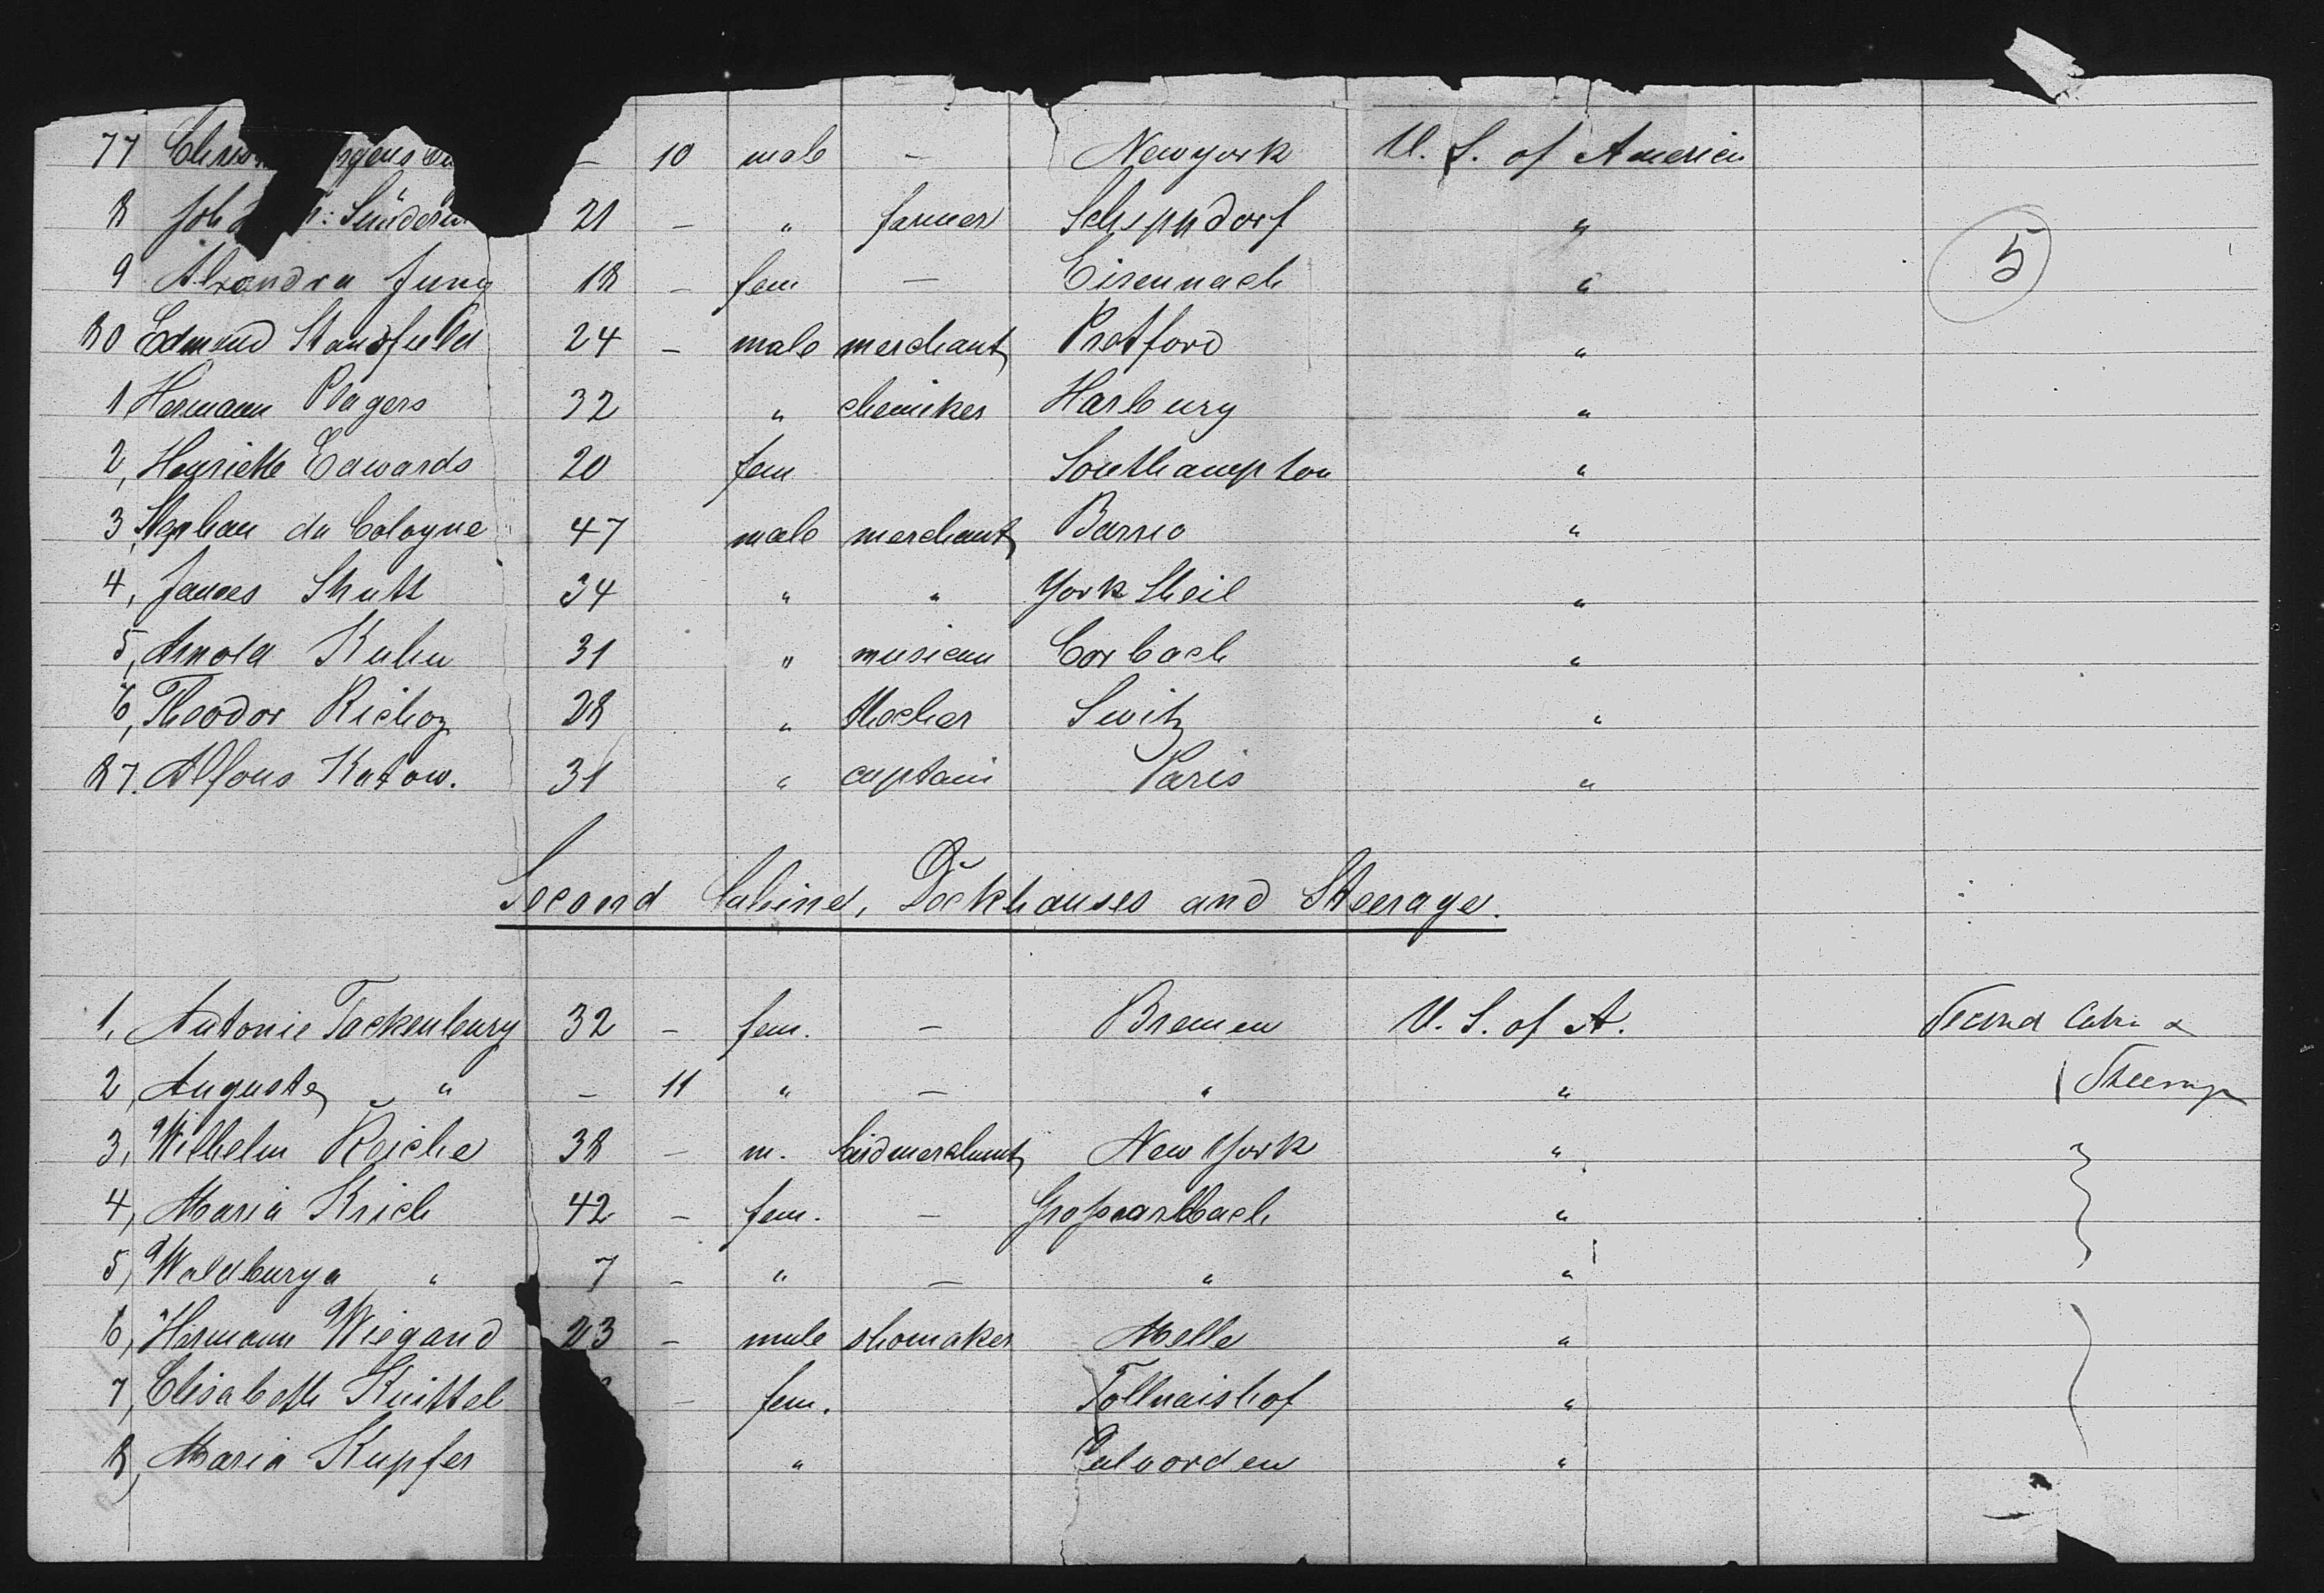 77 10 male — Newyork U. S. of America
8 Joh 21 — " farmer Schepndorf "
9 Alexandra Jung 18 — fem — Eisennach "
80 Edmund Stansfield 24 — male merchant Pretford "
1 Hermann Plagers 32 " chemiker Harburg "
2, Henriette Edwards 20 fem Southampton "
3, Stephan da Cologne 47 male merchant Barrio "
4, James Shutt 34 " " York Sheil "
5, Arnold Kuhn 31 " musicau Corbach "
6, Theodor Richoz 28 " thecher Switz "
87. Alfons Katow. 31 " captain Paris "
5
Second Cabine, Deckhauses and Steerage.
1, Antonie Tackenburg 32 — fem. — Bremen U. S. of A. Second Cabin &
2, Auguste " — 11 " — " " Steerage
3, Wilhelm Reiche 38 — m. birdmerchant New York "
4, Maria Krich 42 — fem. — Großcarlbach "
5, Waldburga " 7 — " — " "
6, Hermann Wiegand 23 — male shomaker Melle "
7, Elisabeth Knittel — fem. Tollnaishof "
8, Maria Kupfer " "